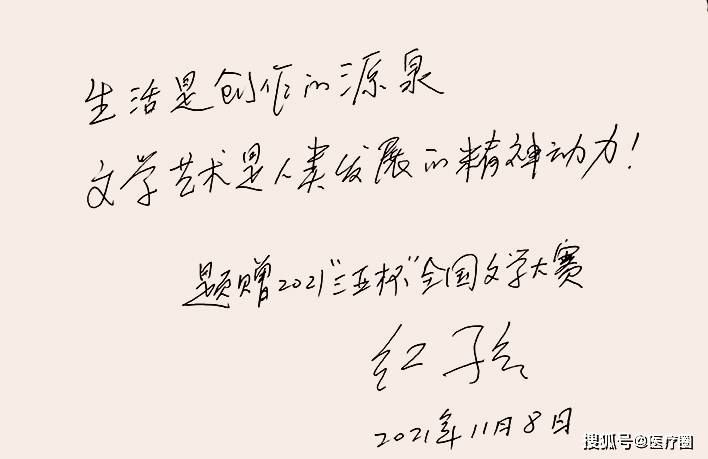 生活是创作的源泉
文学艺术是人类发展的精神动力！
题赠2021"三亚杯"全国文学大赛
红孩
2021年11月8日
搜狐号@医疗圈